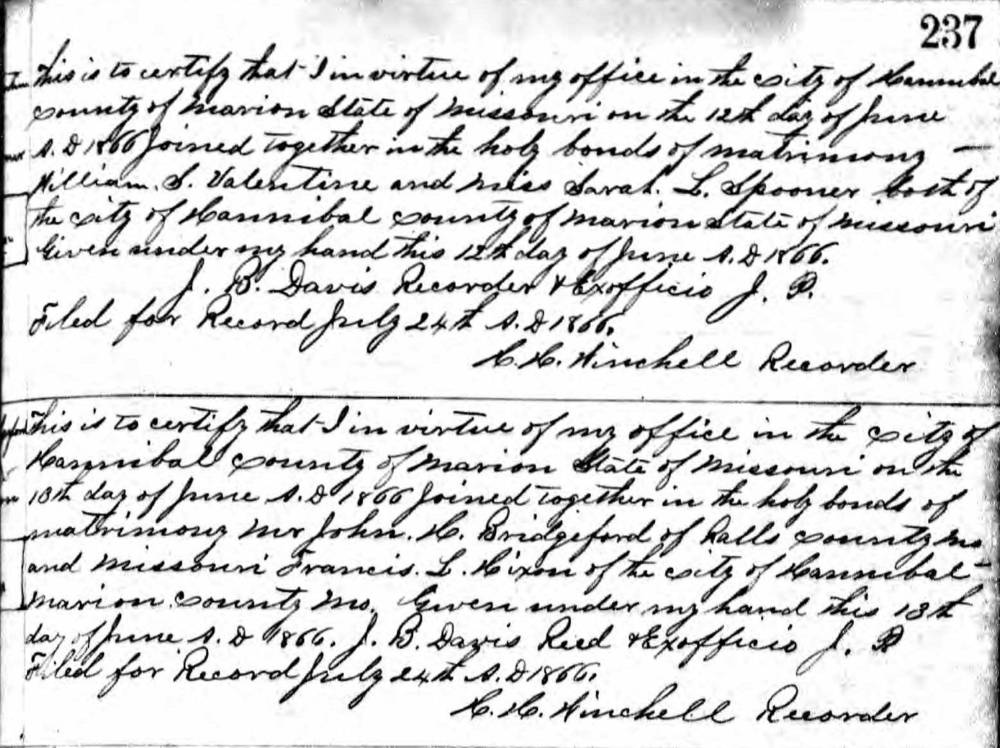 237
This is to certify that I in virtue of my office in the city of Hannibal
county of Marion State of Missouri on the 12th day of June
A.D 1866 Joined together in the holy bonds of matrimony —
William. S. Valentine and Miss Sarah. L. Spooner both of
the city of Hannibal county of Marion State of Missouri
Given under my hand this 12th day of June A.D 1866.
J. B. Davis Recorder & Exofficio J. P.
Filed for Record July 24th A.D 1866.
H. H. Winchell Recorder
This is to certify that I in virtue of my office in the city of
Hannibal county of Marion State of Missouri on the
13th day of June A.D 1866 Joined together in the holy bonds of
matrimony Mr John. H. Bridgeford of Ralls county Mo
and Missouri Francis. L. Hixon of the city of Hannibal
Marion county Mo. Given under my hand this 13th
day of June A.D 1866. J. B. Davis Recd & Exofficio J. P
Filed for Record July 24th A.D 1866.
H. H. Winchell Recorder